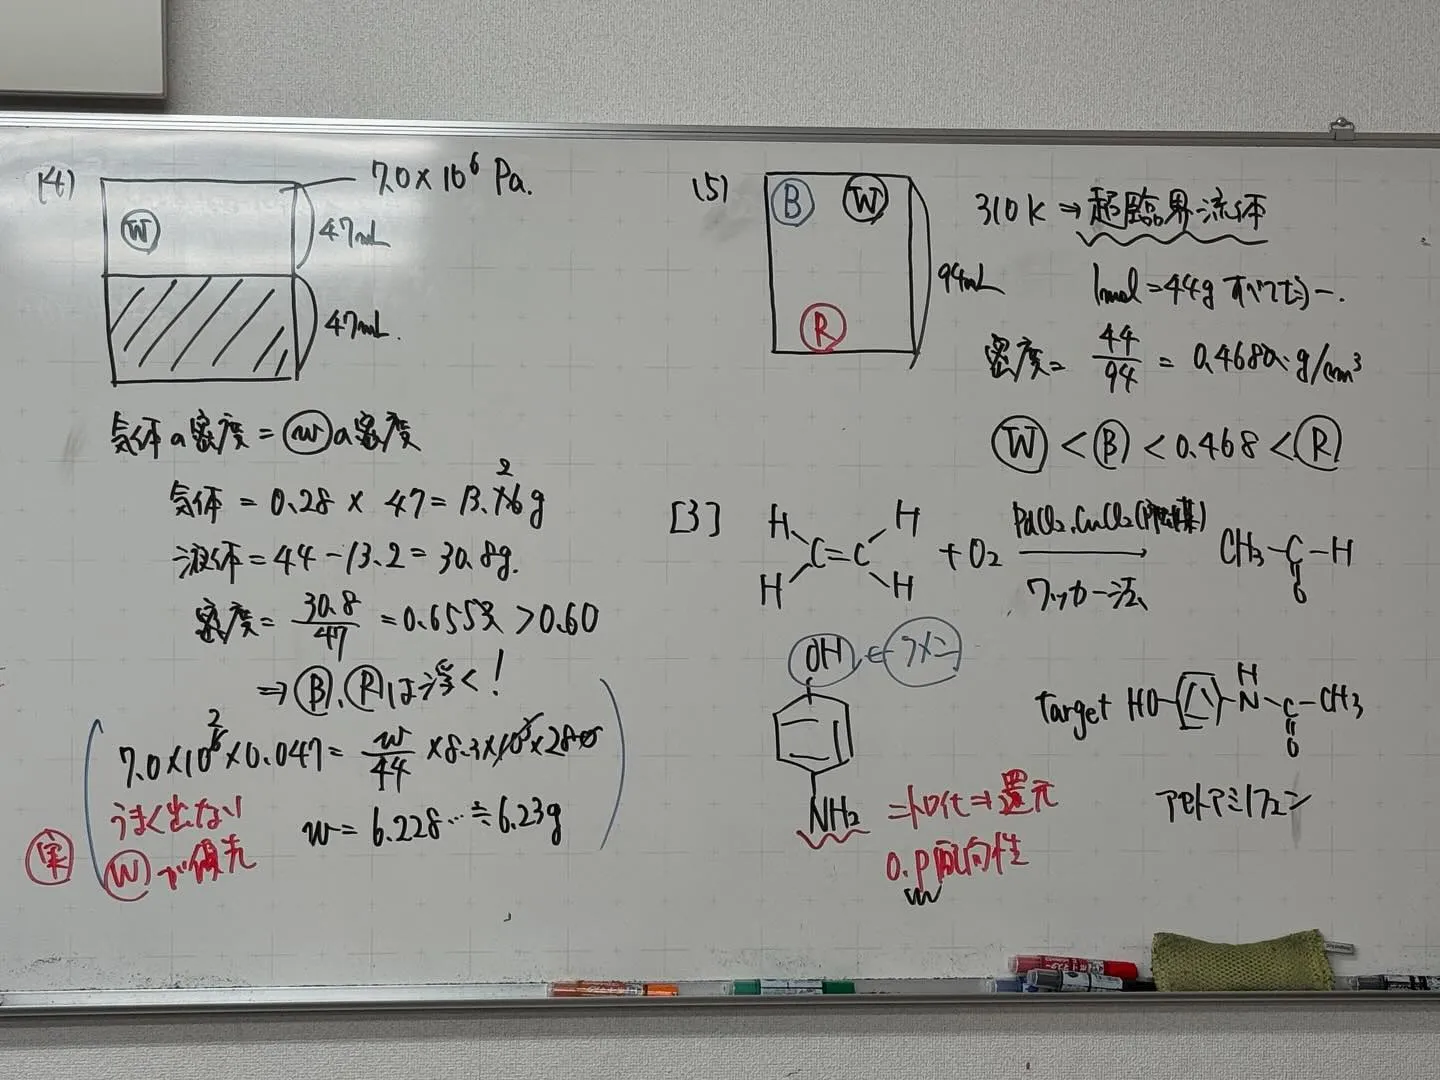 (4)
7.0×10⁶ Pa.
Ⓦ
47mL
47mL.
気体の密度=ⓦの密度
気体 = 0.28 × 47 = 13.16g
2
液体 = 44 - 13.2 = 30.8g.
密度 = 30.8/47 = 0.655 > 0.60
⇒ Ⓑ、Ⓡは浮く!
7.0×10⁶×0.047 = w/44 ×8.3×10³×280
2
うまく出ない
w = 6.228… ≒ 6.23g
実
Ⓦが優先
(5)
Ⓑ Ⓦ
Ⓡ
94mL
310K ⇒ 超臨界流体
1mol=44g すべて均一.
密度 = 44/94 = 0.468 g/cm³
Ⓦ < Ⓑ < 0.468 < Ⓡ
[3]
H H
C=C
H H
+ O₂
PdCl₂, CuCl₂(触媒)
ワッカー法
CH₃-C-H
O
OH ← メイン
NH₂
ニトロ化⇒還元
o.p配向性
Target HO- -N-C-CH₃
H
O
アセトアミノフェン